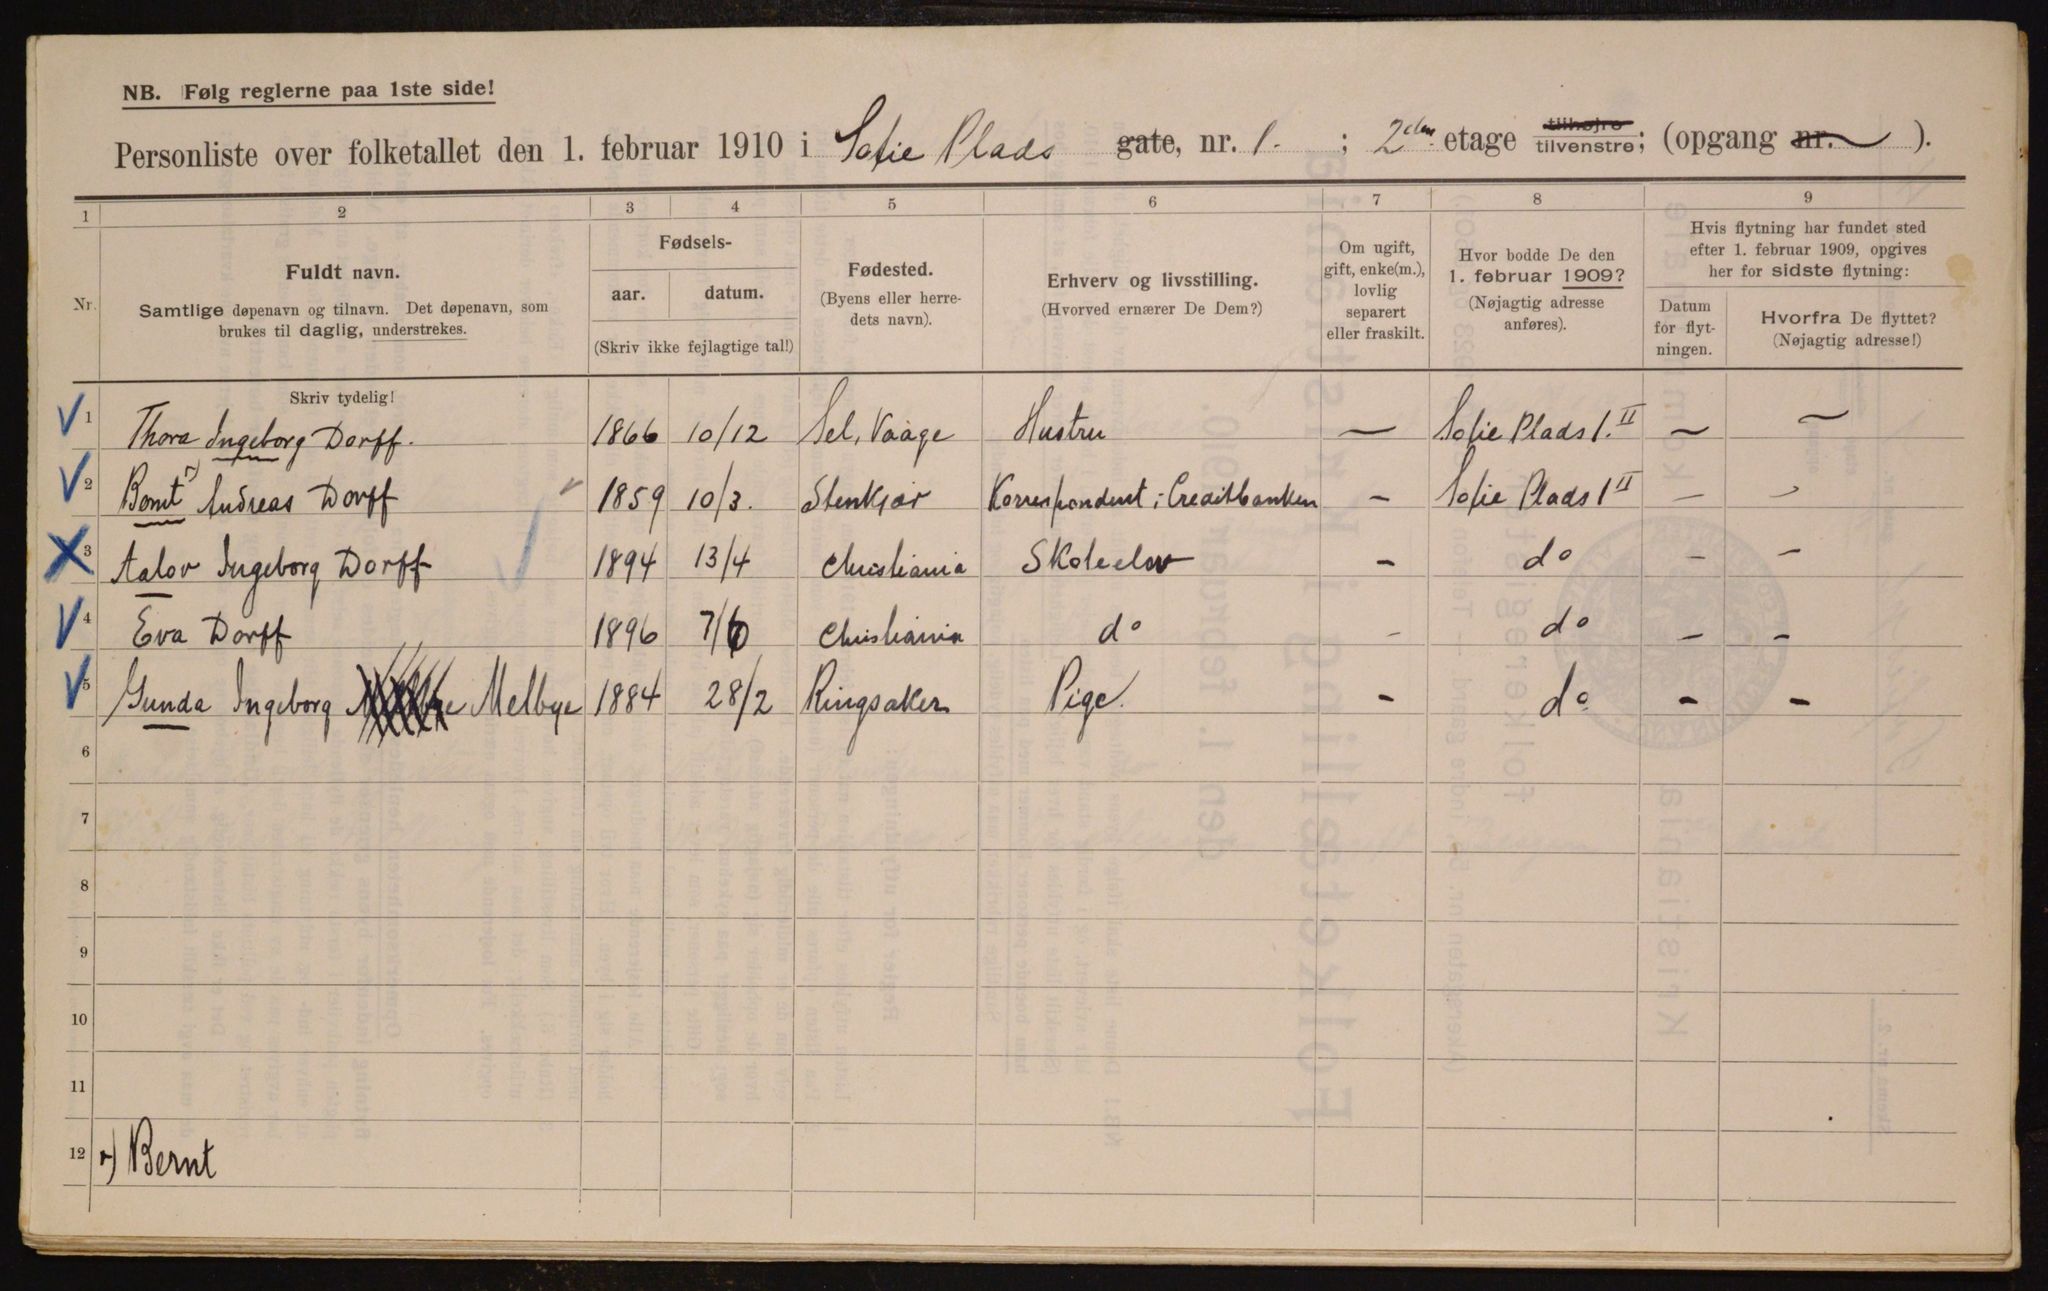 NB. Følg reglerne paa 1ste side!
Personliste over folketallet den 1. februar 1910 i Sofie Plads gate, nr. 1. ; 2den etage tilhøjre tilvenstre; (opgang nr. ).
1 2 3 4 5 6 7 8 9
Nr. Fuldt navn. Samtlige døpenavn og tilnavn. Det døpenavn, som brukes til daglig, understrekes.
Fødsels-
aar. datum.
(Skriv ikke fejlagtige tal!)
Fødested.
(Byens eller herre-
dets navn).
Erhverv og livsstilling.
(Hvorved ernærer De Dem?)
Om ugift,
gift, enke(m.),
lovlig
separert
eller fraskilt.
Hvor bodde De den
1. februar 1909?
(Nøjagtig adresse
anføres).
Hvis flytning har fundet sted
efter 1. februar 1909, opgives
her for sidste flytning:
Datum
for flyt-
ningen.
Hvorfra De flyttet?
(Nøjagtig adresse!)
Skriv tydelig!
1 Thora Ingeborg Dorff. 1866 10/12 Sel, Vaage Hustru — Sofie Plads 1. II — —
2 Bernt Andreas Dorff 1859 10/3. Stenkjær Korrespondent i Creditbanken - Sofie Plads 1 II - -
3 Aalov Ingeborg Dorff 1894 13/4 Christiania Skoleelev - do - -
4 Eva Dorff 1896 7/6 Christiania do - do - -
5 Gunda Ingeborg Melbye 1884 28/2 Ringsaker Pige. - do - -
6
7
8
9
10
11
12 Bernt